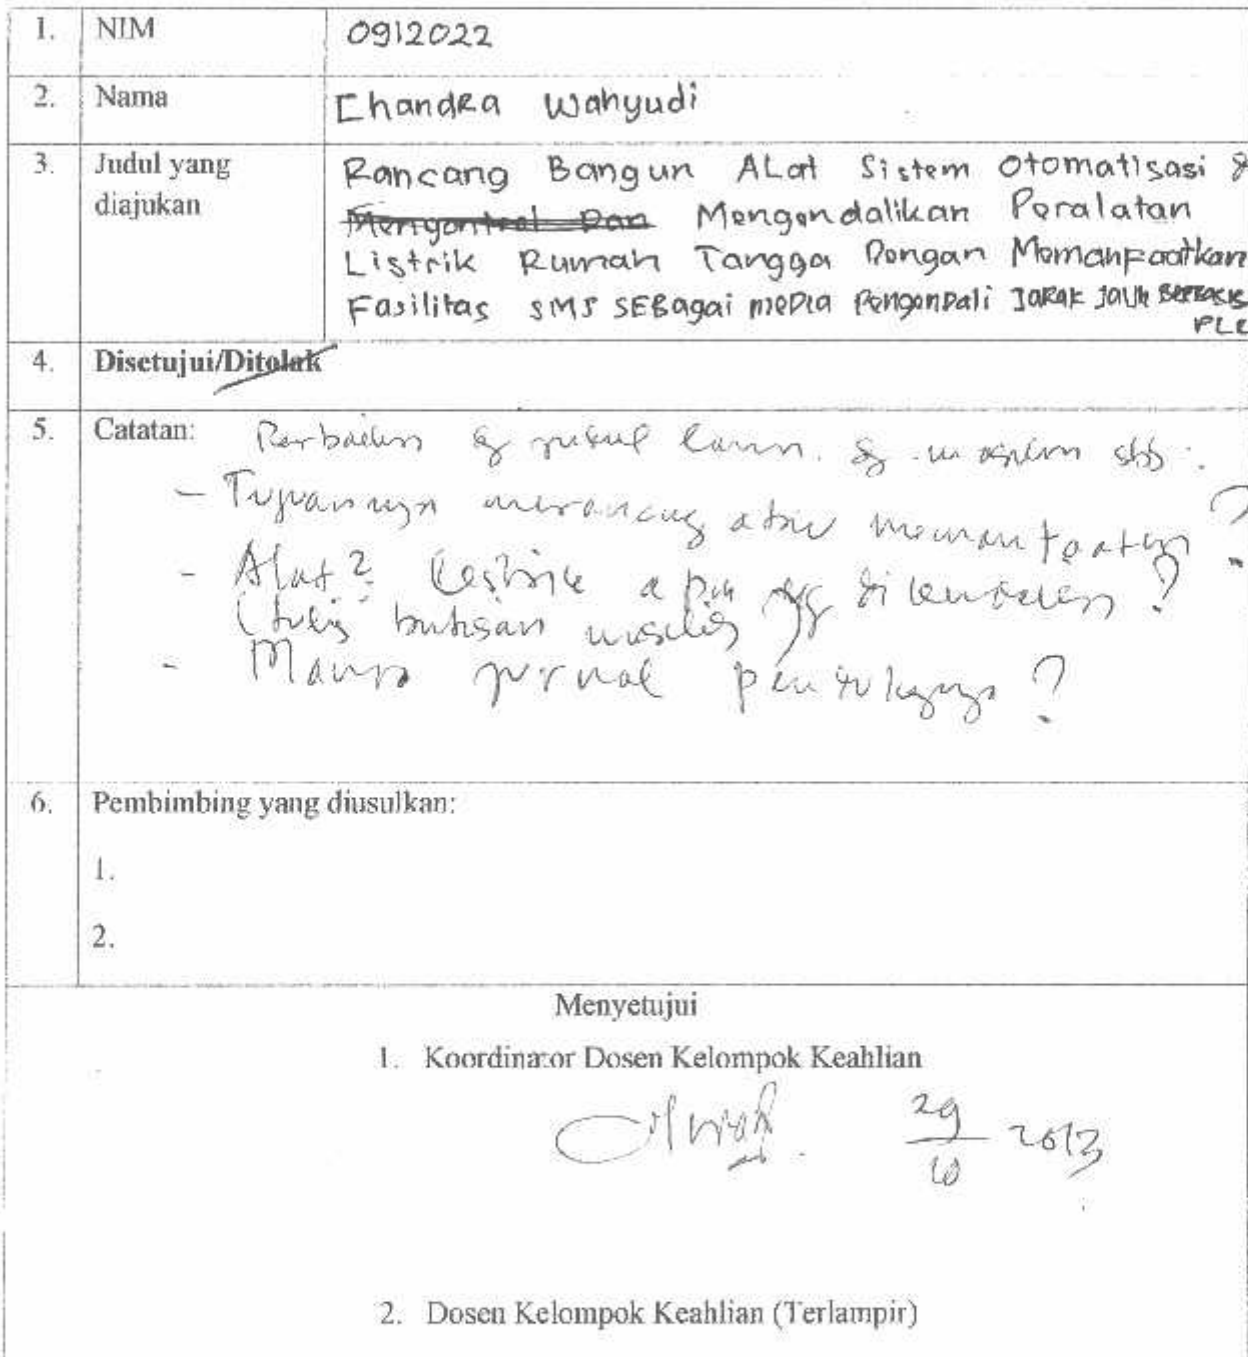 1. NIM 0912022
2. Nama Chandra Wahyudi
3. Judul yang diajukan Rancang Bangun Alat Sistem Otomatisasi &
Mengontrol Dan Mengendalikan Peralatan
Listrik Rumah Tangga Dengan Memanfaatkan
Fasilitas SMS SEBagai meDia PengenDali JaRak Jauh Berbasis
PLC
4. Disetujui/Ditolak
5. Catatan: Perbaiki judul
- Tujuannya merancang atau memanfaatkan ?
- Alat? Listrik apa yg di
(tulis batasan
- Mana jurnal ?
6. Pembimbing yang diusulkan:
1.
2.
Menyetujui
1. Koordinator Dosen Kelompok Keahlian
29/10 2013
2. Dosen Kelompok Keahlian (Terlampir)